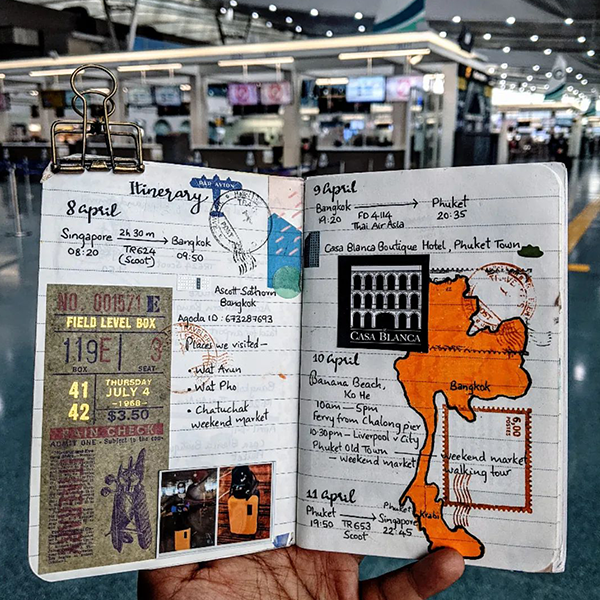 Itinerary
PAR AVION
8 April
Singapore 2h 30m Bangkok
08:20 TR624 09:50
(Scoot)
Ascott Sathorn
Bangkok
Agoda ID: 673287693
Places we visited-
• Wat Arun
• Wat Pho
• Chatuchak
weekend market
NO. 001571 E
FIELD LEVEL BOX
119E 3
BOX SEAT
41
42
THURSDAY
JULY 4
-1968-
$3.50
RAIN CHECK
ADMIT ONE - Subject to the
9 April
Bangkok Phuket
19:20 FD 4114 20:35
Thai Air Asia
Casa Blanca Boutique Hotel, Phuket Town
CASA BLANCA
10 April
Banana Beach,
Ko He
10am – 5pm
Ferry from Chalong pier
10:30pm – Liverpool v City
Phuket Old Town
– weekend market
weekend market
walking tour
Bangkok
6,00
POSTES
Krabi
Phuket
11 April
Phuket Singapore
19:50 TR653 22:45
Scoot